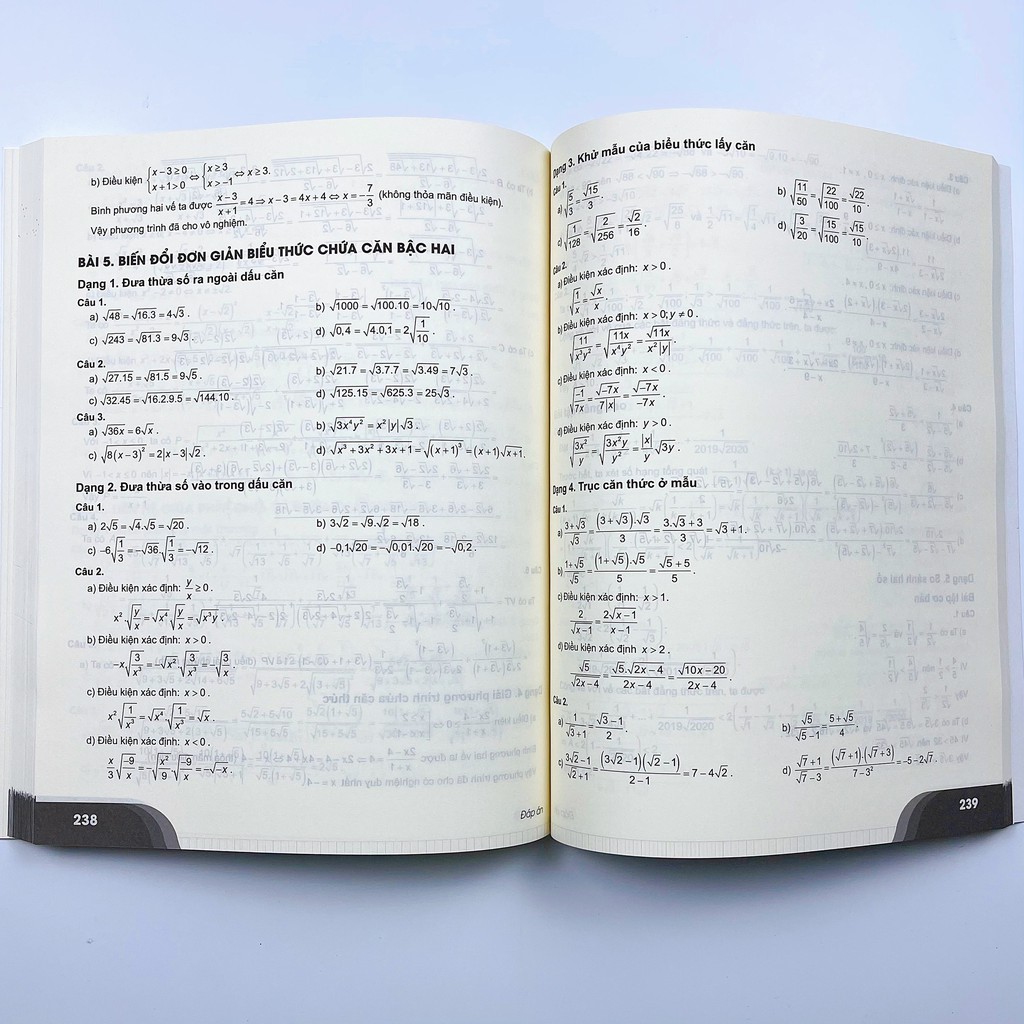 b) Điều kiện {x − 3 ≥ 0; x + 1 > 0 ⇔ {x ≥ 3; x > −1 ⇔ x ≥ 3.
Bình phương hai vế ta được (x−3)/(x+1) = 4 ⇒ x − 3 = 4x + 4 ⇔ x = −7/3 (không thỏa mãn điều kiện).
Vậy phương trình đã cho vô nghiệm.
BÀI 5. BIẾN ĐỔI ĐƠN GIẢN BIỂU THỨC CHỨA CĂN BẬC HAI
Dạng 1. Đưa thừa số ra ngoài dấu căn
Câu 1.
a) √48 = √(16.3) = 4√3 . b) √1000 = √(100.10) = 10√10
c) √243 = √(81.3) = 9√3 . d) √0,4 = √(4.0,1) = 2√(1/10) .
Câu 2.
a) √(27.15) = √(81.5) = 9√5 . b) √(21.7) = √(3.7.7) = √(3.49) = 7√3 .
c) √(32.45) = √(16.2.9.5) = √(144.10) . d) √(125.15) = √(625.3) = 25√3 .
Câu 3.
a) √(36x) = 6√x . b) √(3x⁴y²) = x²|y|√3 .
c) √(8(x−3)²) = 2|x−3|√2 . d) √(x³ + 3x² + 3x + 1) = √((x+1)³) = (x+1)√(x+1) .
Dạng 2. Đưa thừa số vào trong dấu căn
Câu 1.
a) 2√5 = √4.√5 = √20 . b) 3√2 = √9.√2 = √18 .
c) −6√(1/3) = −√36.√(1/3) = −√12 . d) −0,1√20 = −√0,01.√20 = −√0,2 .
Câu 2.
a) Điều kiện xác định: y/x ≥ 0 .
x².√(y/x) = √(x⁴).√(y/x) = √(x³y) .
b) Điều kiện xác định: x > 0 .
−x√(3/x³) = −√(x²).√(3/x³) = −√(3/x) .
c) Điều kiện xác định: x > 0 .
x²√(1/x³) = √(x⁴).√(1/x³) = √x .
d) Điều kiện xác định: x < 0 .
(x/3)√(−9/x) = −√(x²/9).√(−9/x) = −√(−x) .
238
Đáp án
Dạng 3. Khử mẫu của biểu thức lấy căn
Câu 1.
a) √(5/3) = √15/3 . b) √(11/50) = √(22/100) = √22/10 .
c) √(1/128) = √(2/256) = √2/16 . d) √(3/20) = √(15/100) = √15/10 .
Câu 2.
a) Điều kiện xác định: x > 0 .
√(1/x) = √x/x .
b) Điều kiện xác định: x > 0; y ≠ 0 .
√(11/(x³y²)) = √(11x/(x⁴y²)) = √(11x)/(x²|y|) .
c) Điều kiện xác định: x < 0 .
√(−1/(7x)) = √(−7x)/(7|x|) = √(−7x)/(−7x) .
d) Điều kiện xác định: y > 0 .
√(3x²/y) = √(3x²y/y²) = (|x|/y)√(3y) .
Dạng 4. Trục căn thức ở mẫu
Câu 1.
a) (3+√3)/√3 = ((3+√3).√3)/3 = (3.√3+3)/3 = √3 + 1 .
b) (1+√5)/√5 = ((1+√5).√5)/5 = (√5+5)/5 .
c) Điều kiện xác định: x > 1 .
2/√(x−1) = 2√(x−1)/(x−1) .
d) Điều kiện xác định x > 2 .
√5/√(2x−4) = (√5.√(2x−4))/(2x−4) = √(10x−20)/(2x−4) .
Câu 2.
a) 1/(√3+1) = (√3−1)/2 . b) √5/(√5−1) = (5+√5)/4 .
c) (3√2−1)/(√2+1) = ((3√2−1)(√2−1))/(2−1) = 7 − 4√2 . d) (√7+1)/(√7−3) = ((√7+1).(√7+3))/(7−3²) = −5 − 2√7 .
239